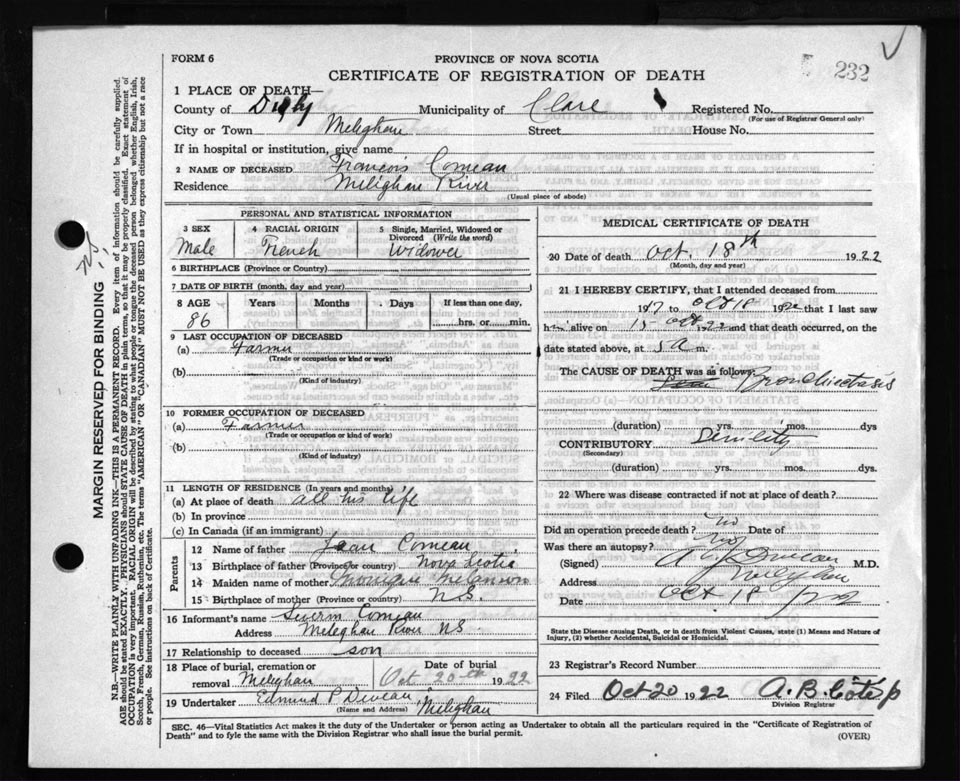 FORM 6
PROVINCE OF NOVA SCOTIA
CERTIFICATE OF REGISTRATION OF DEATH
232
1 PLACE OF DEATH—
County of Digby Municipality of Clare Registered No.
(For use of Registrar General only)
City or Town Meteghan Street House No.
If in hospital or institution, give name
2 NAME OF DECEASED Francois Comeau
Residence Meteghan River
(Usual place of abode)
PERSONAL AND STATISTICAL INFORMATION
3 SEX 4 RACIAL ORIGIN 5 Single, Married, Widowed or Divorced (Write the word)
Male French Widower
6 BIRTHPLACE (Province or Country)
7 DATE OF BIRTH (month, day and year)
8 AGE Years Months Days If less than one day,
86 hrs. or min.
9 LAST OCCUPATION OF DECEASED
(a) Farmer
(Trade or occupation or kind or work)
(b)
(Kind of industry)
10 FORMER OCCUPATION OF DECEASED
(a) Farmer
(Trade or occupation or kind of work)
(b)
(Kind of industry)
11 LENGTH OF RESIDENCE (In years and months)
(a) At place of death all his life
(b) In province
(c) In Canada (if an immigrant)
Parents
12 Name of father Jean Comeau
13 Birthplace of father (Province or country) Nova Scotia
14 Maiden name of mother
15 Birthplace of mother (Province or country) N.S.
16 Informant's name Comeau
Address Meteghan River NS
17 Relationship to deceased son
18 Place of burial, cremation or removal Meteghan
Date of burial Oct 20th 1922
19 Undertaker Edmund P Deveau Meteghan
(Name and Address)
MEDICAL CERTIFICATE OF DEATH
20 Date of death Oct. 18th 1922
(Month, day and year)
21 I HEREBY CERTIFY, that I attended deceased from
17 to Oct 18 1922 that I last saw
him alive on 15 Oct 1922 and that death occurred, on
date stated above, at 5 a m.
The CAUSE OF DEATH was as follows: Bronchiectasis
(duration) yrs. mos. dys
CONTRIBUTORY Senility
(Secondary)
(duration) yrs. mos. dys
22 Where was disease contracted if not at place of death?
Did an operation precede death? no Date of
Was there an autopsy? no
(Signed) M.D.
Address Meteghan
Date Oct 18/22
State the Disease causing Death, or in death from Violent Causes, state (1) Means and Nature of Injury, (2) whether Accidental, Suicidal or Homicidal.
23 Registrar's Record Number
24 Filed Oct 20 1922 A. B. Côté p
Division Registrar
SEC. 46—Vital Statistics Act makes it the duty of the Undertaker or person acting as Undertaker to obtain all the particulars required in the "Certificate of Registration of
Death" and to fyle the same with the Division Registrar who shall issue the burial permit.
(OVER)
MARGIN RESERVED FOR BINDING
N.B.—WRITE PLAINLY WITH UNFADING INK—THIS IS A PERMANENT RECORD. Every item of Information should be carefully supplied.
AGE should be stated EXACTLY. PHYSICIANS should STATE CAUSE OF DEATH in plain terms, so that it may be properly classified. Exact statement of
OCCUPATION is very important. RACIAL ORIGIN will be described by stating to what people or tongue the deceased person belonged whether English, Irish,
Scotch, French, German, Russian, Ruthenian, etc. The terms "AMERICAN" OR "CANADIAN" MUST NOT BE USED as they express citizenship but not a race
or people. See instructions on back of Certificate.